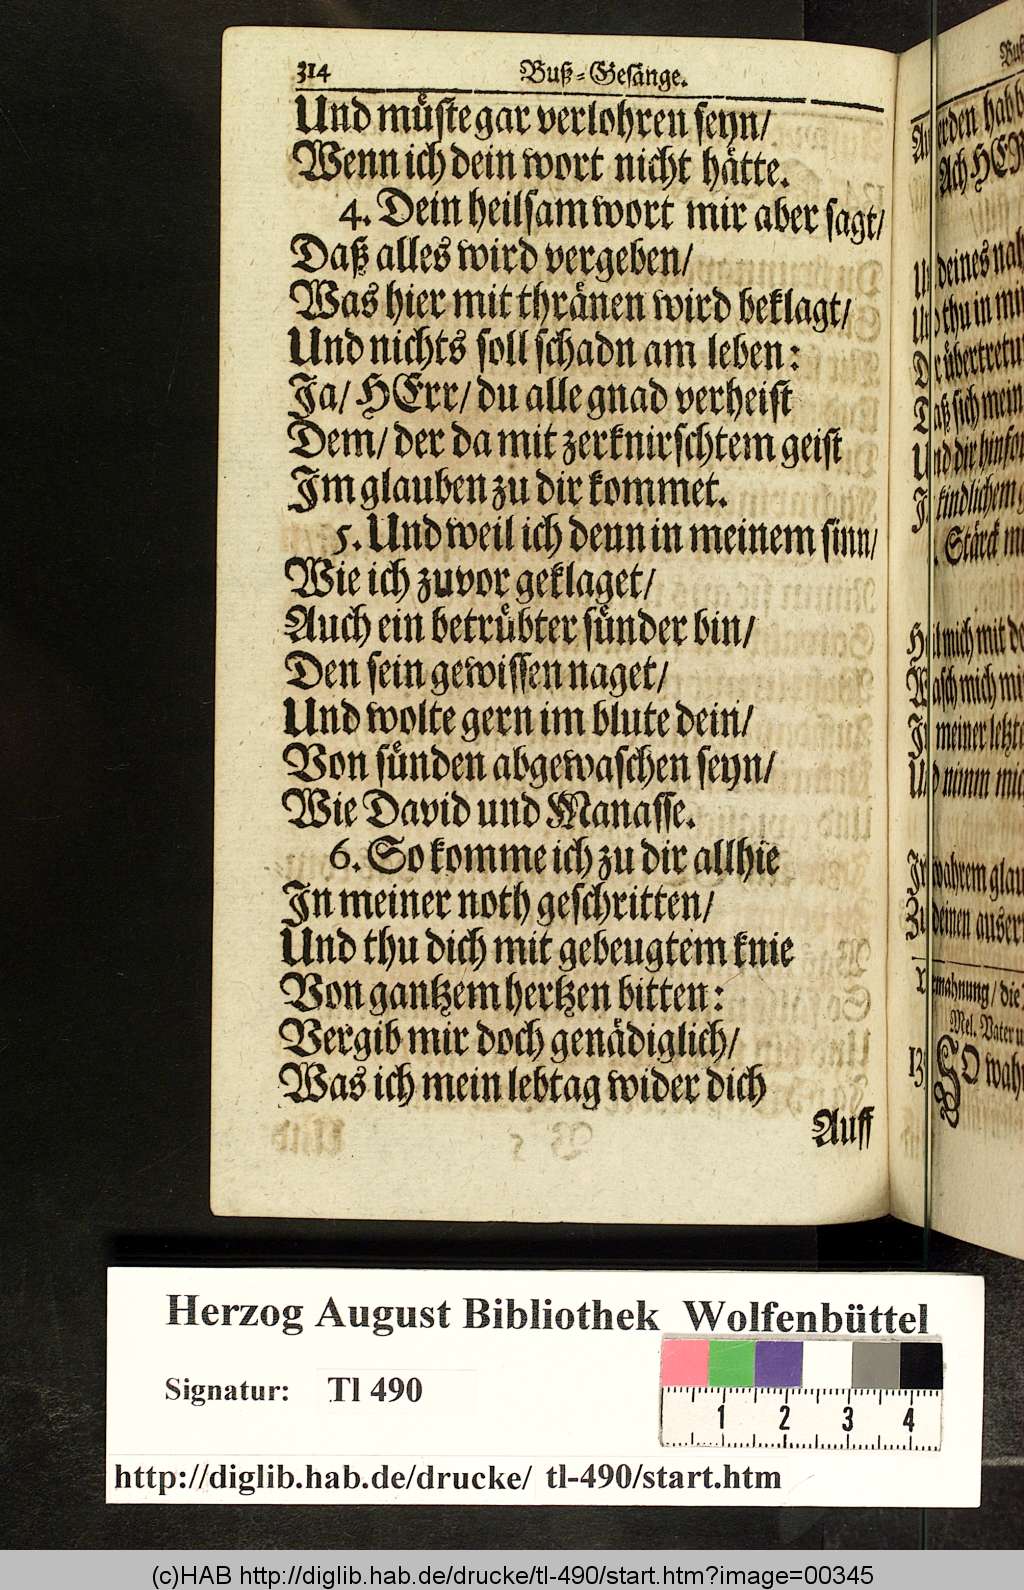 314 Buß-Gesänge.
Und müste gar verlohren seyn/
Wenn ich dein wort nicht hätte.
4. Dein heilsam wort mir aber sagt/
Daß alles wird vergeben/
Was hier mit thränen wird beklagt/
Und nichts soll schadn am leben:
Ja/ HErr/ du alle gnad verheist
Dem/ der da mit zerknirschtem geist
Im glauben zu dir kommet.
5. Und weil ich denn in meinem sinn/
Wie ich zuvor geklaget/
Auch ein betrübter sünder bin/
Den sein gewissen naget/
Und wolte gern im blute dein/
Von sünden abgewaschen seyn/
Wie David und Manasse.
6. So komme ich zu dir allhie
In meiner noth geschritten/
Und thu dich mit gebeugtem knie
Von gantzem hertzen bitten:
Vergib mir doch genädiglich/
Was ich mein lebtag wider dich
Auff
Ach HER
deines nah
thu in mi
übertretu
sich mein
Und dir hinfor
kindlichem
Stärck
mich mit
mich mi
meiner letzte
nimm mic
wahrem glau
deinen auser
mahnung/ die
Mel. Vater u
SO wah
Herzog August Bibliothek Wolfenbüttel
Signatur: Tl 490
1 2 3 4
http://diglib.hab.de/drucke/ tl-490/start.htm
(c)HAB http://diglib.hab.de/drucke/tl-490/start.htm?image=00345